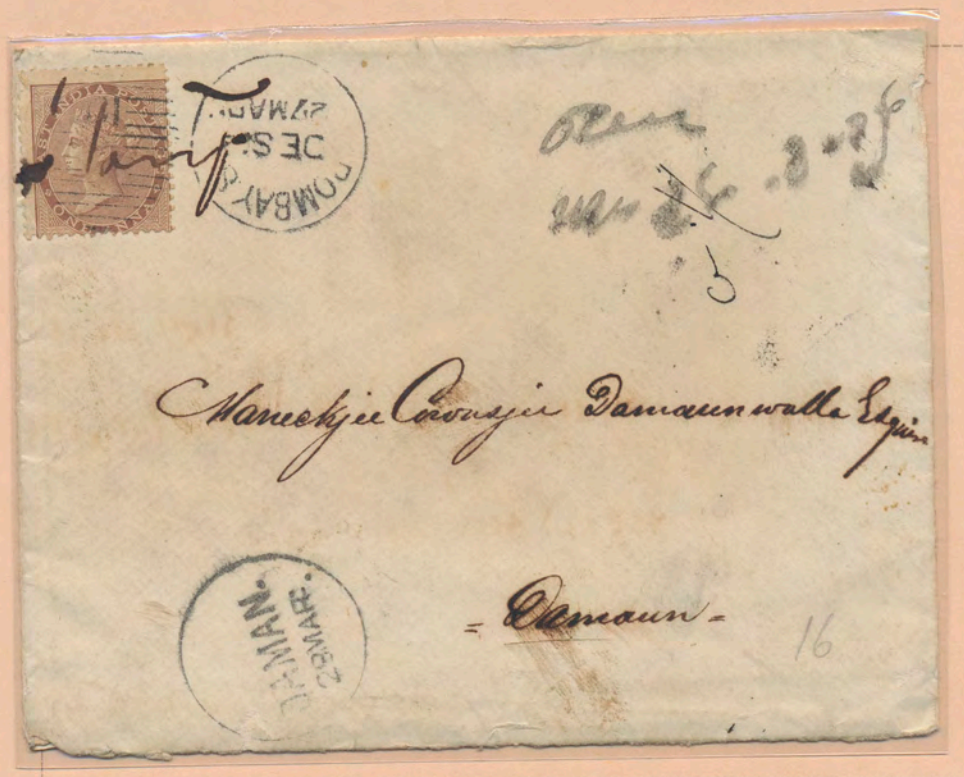 EAST INDIA
ONE ANNA
1 Stamp
BOMBAY
DES
27 MAR
5
Maneckjee Cowasjee Damaunwalla Esquire
= Damaun =
DAMAN.
28 MAR.
16